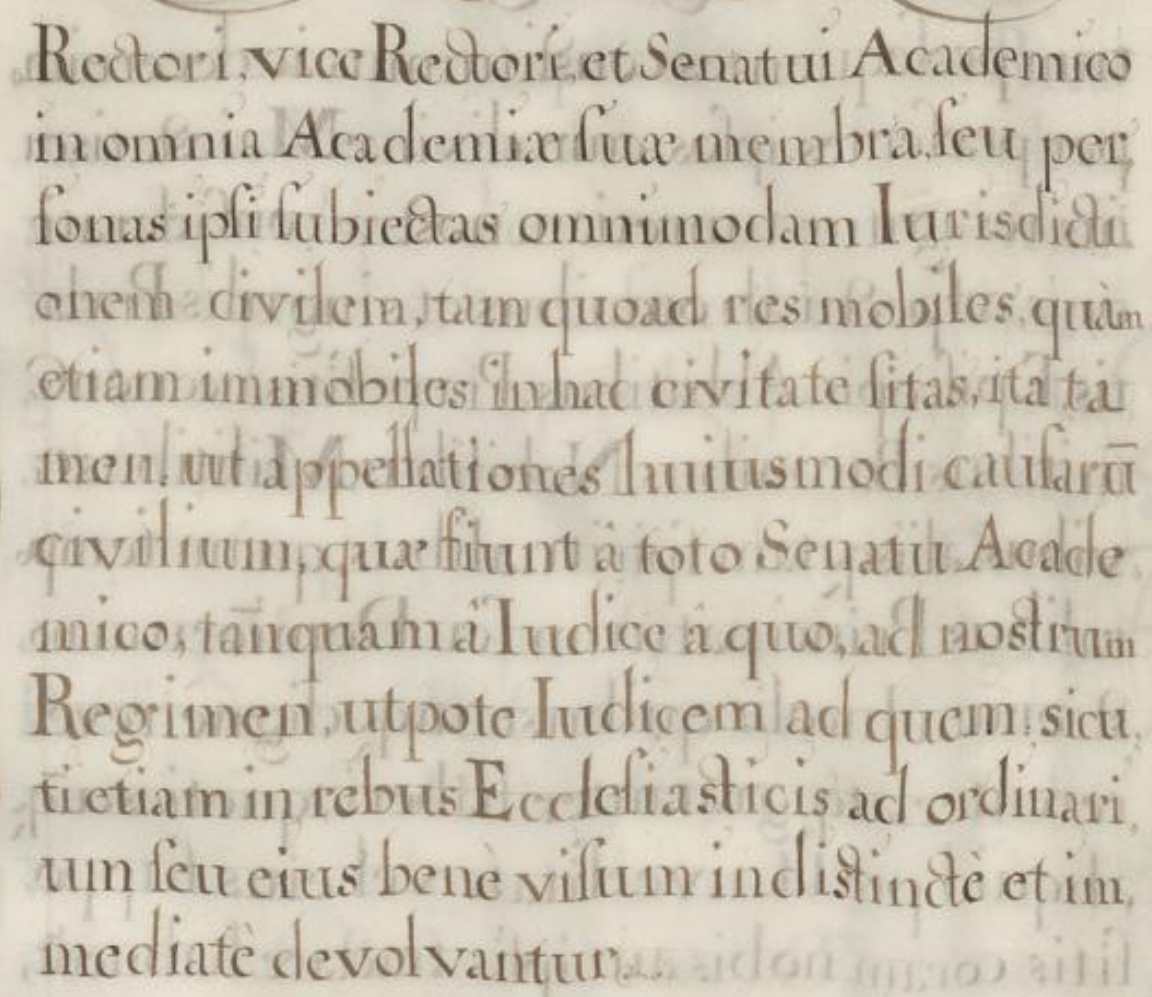 Rectori, vice Rectori, et Senatui Academico
in omnia Academiæ ſuæ membra, ſeu per,
ſonas ipſi ſubiectas omnimodam Iurisdicti
onem divilem, tam quoad res mobiles, quàm
etiam immobiles in hac civitate ſitas, ita ta
men, ut appellationes huiusmodi cauſarū
civilium, quæ fiunt à toto Senatu Acade,
mico, tanquam à Iudice à quo, ad nostrum
Regimen, utpote Iudicem ad quem, sicu,
ti etiam in rebus Eccleſiasticis ad ordinari,
um ſeu eius benè viſum indistinctè et im,
mediatè devolvantur.